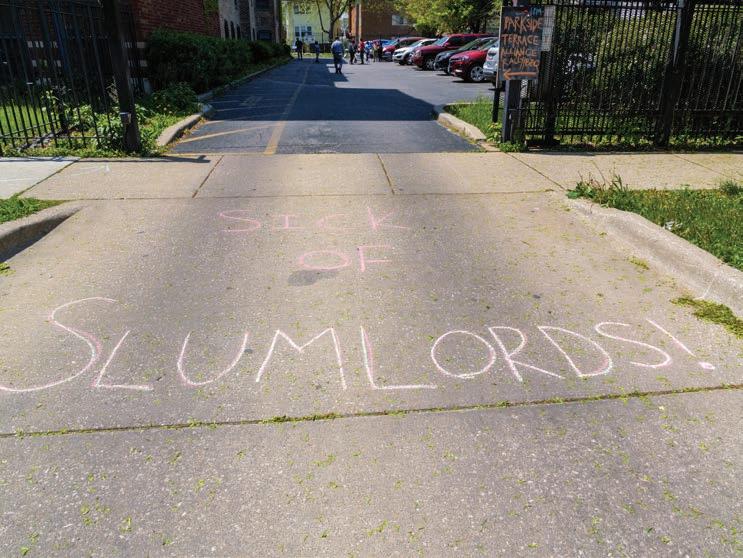 PARKSIDE
TERRACE
SICK
OF
SLUMLORDS!